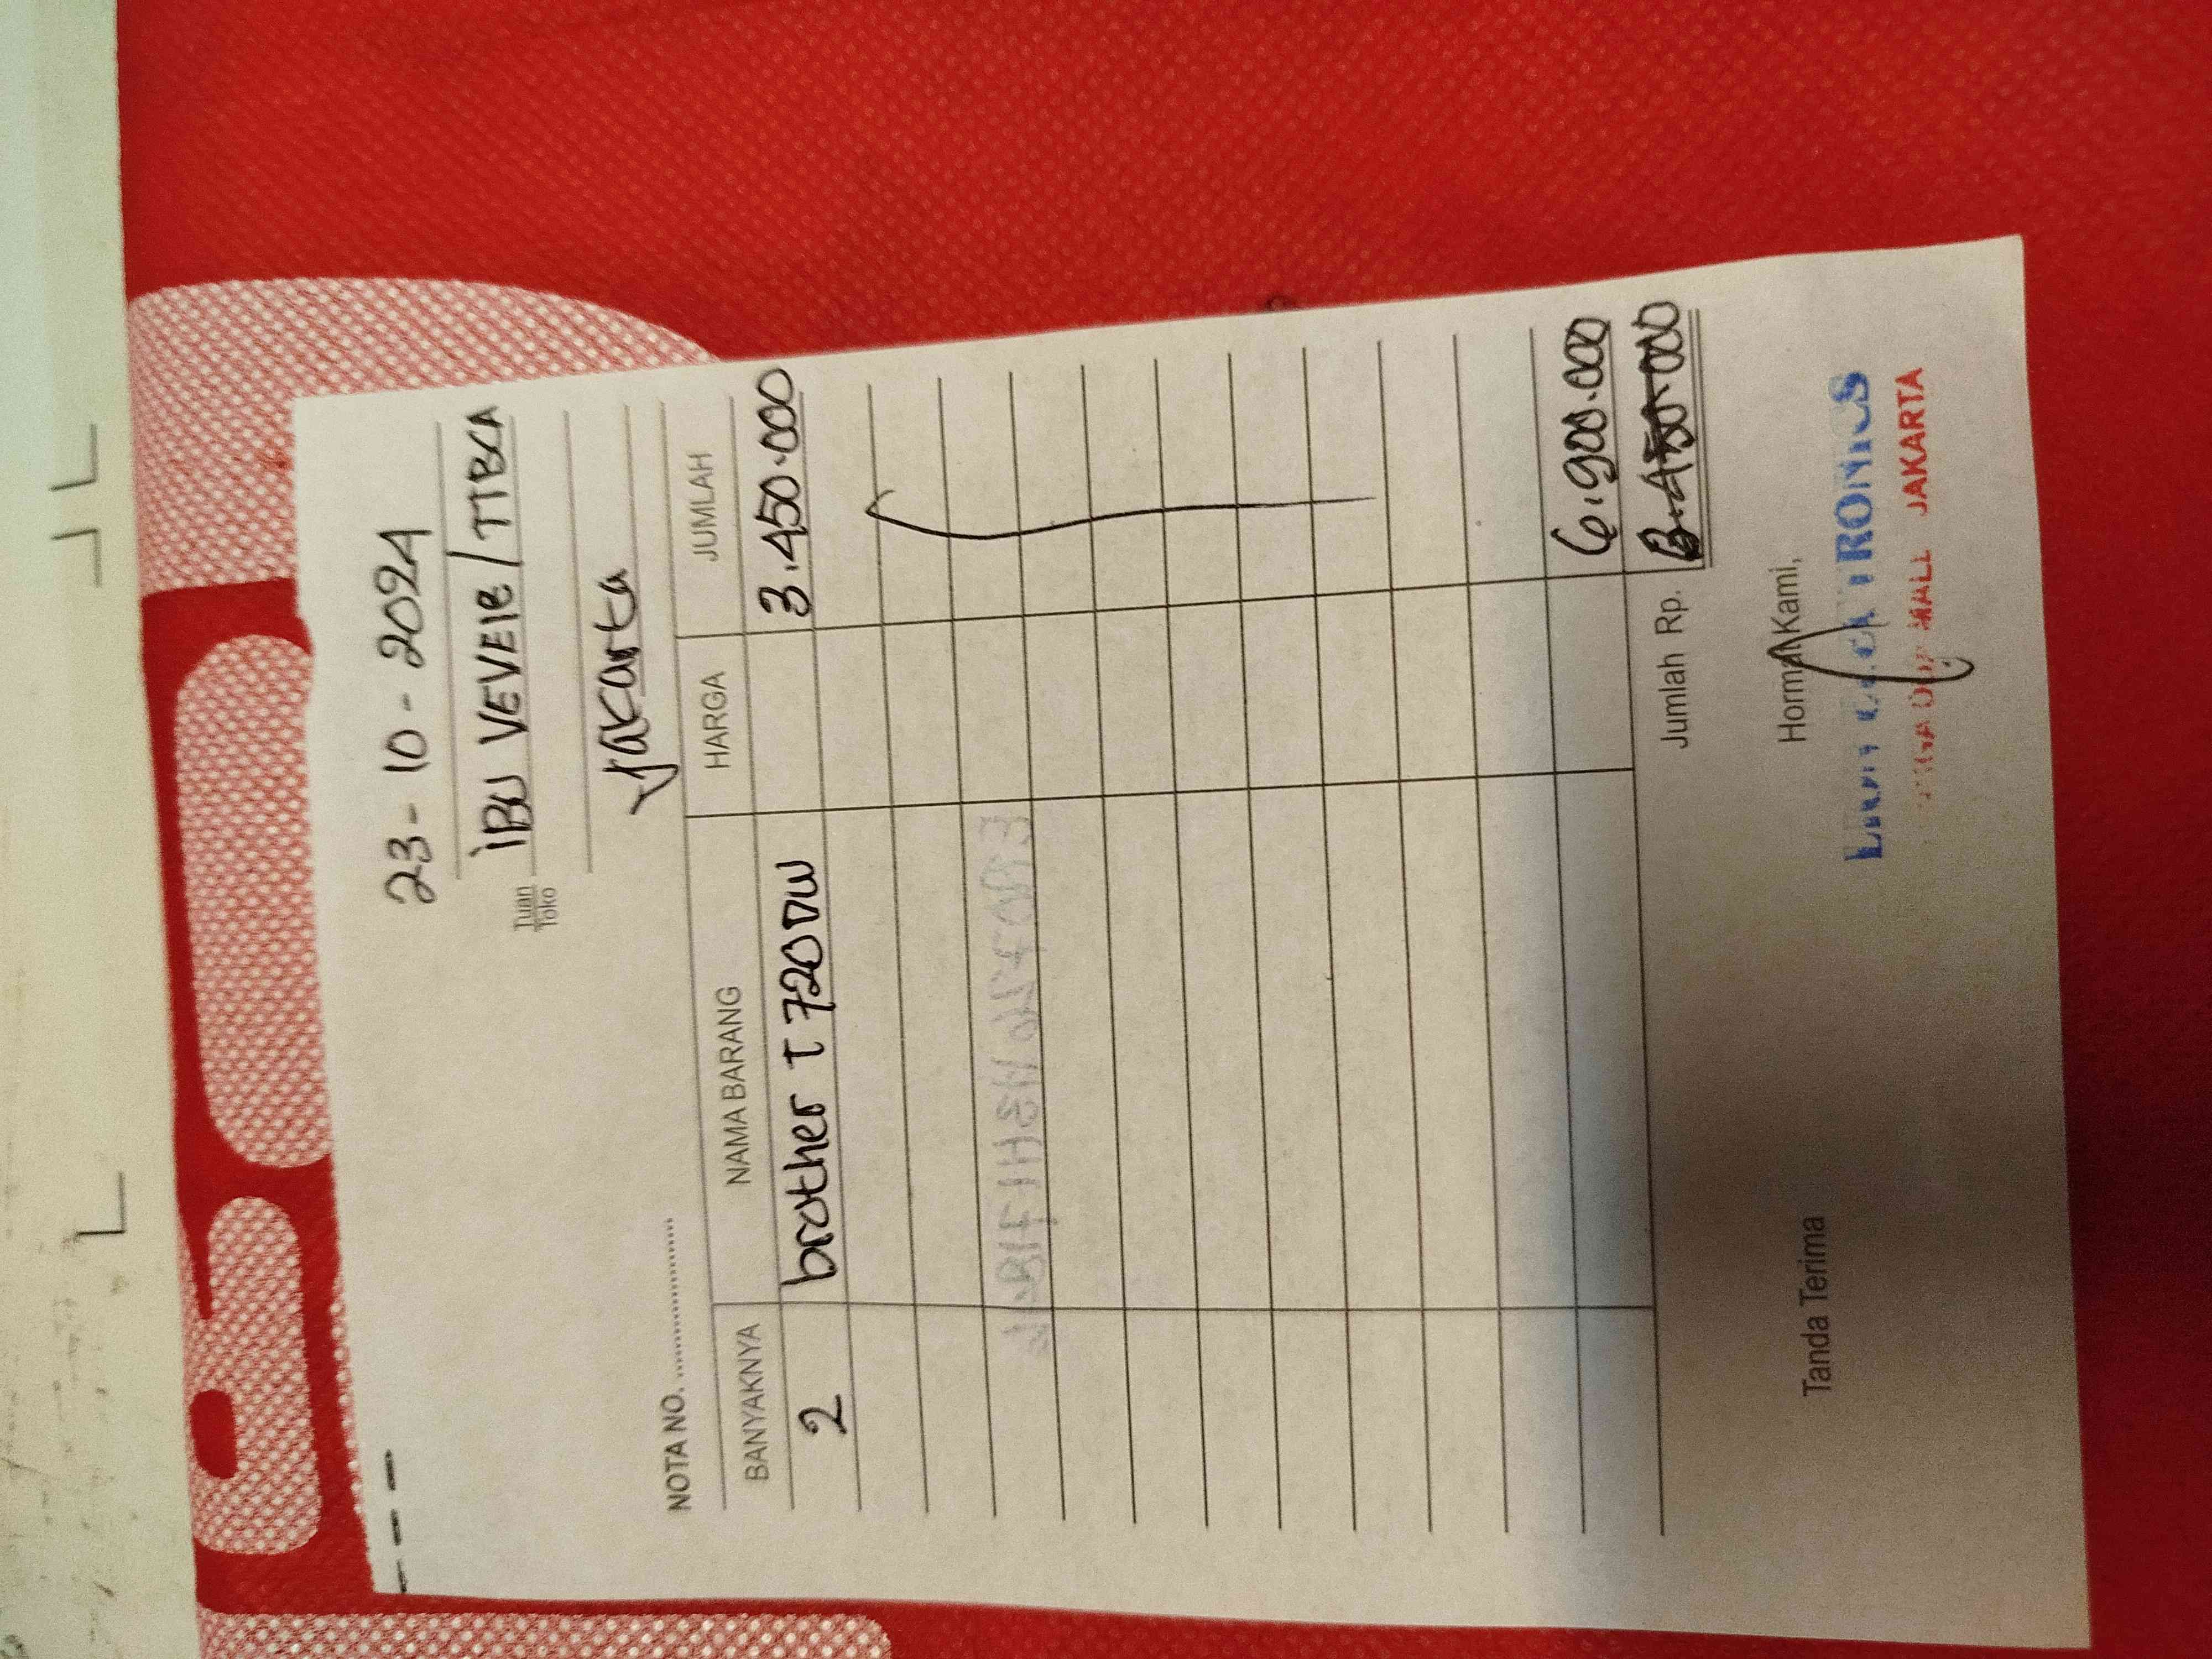 23-10-2024
Tuan
Toko
IBU VEVEIE/TTBCA
Jakarta
NOTA NO. ....................
BANYAKNYA NAMA BARANG HARGA JUMLAH
2 brother T 720DW 3.450.000
6.900.000
Jumlah Rp. 3.450.000
Tanda Terima Hormat Kami,
TRONICS
MALL JAKARTA